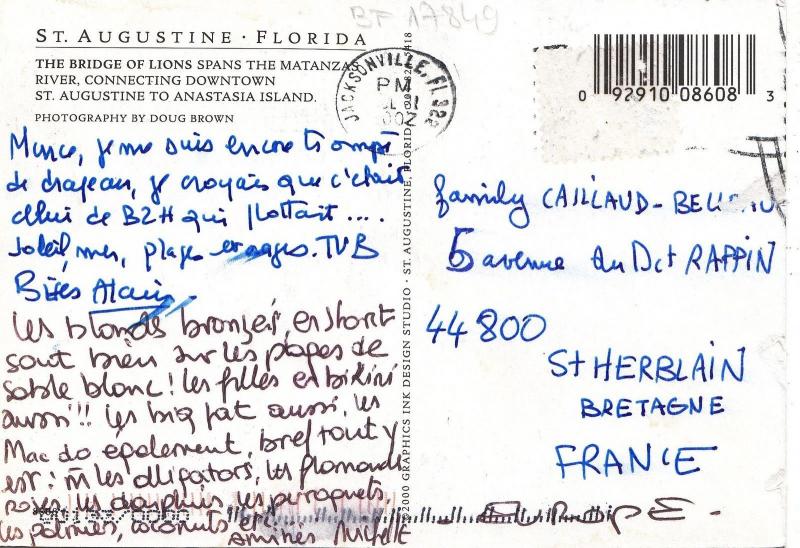 BF 17849
ST. AUGUSTINE · FLORIDA
THE BRIDGE OF LIONS SPANS THE MATANZAS
RIVER, CONNECTING DOWNTOWN
ST. AUGUSTINE TO ANASTASIA ISLAND.
PHOTOGRAPHY BY DOUG BROWN
JACKSONVILLE, FL 322
PM
0 92910 08608 3
©2000 GRAPHICS INK DESIGN STUDIO · ST. AUGUSTINE, FLORIDA
Mince, je me suis encore trompé
de drapeau, je croyais que c'était
celui de BZH qui flottait ....
Soleil, mer, plages et nages. TVB
Bises Alain
Les blonds bronzés, en short
sont bien sur les plages de
sable blanc ! Les filles en bikini
aussi !! Les big fat aussi, les
Mac do également, bref tout y
est : m les alligators, les flamands
roses, les dauphins, les perroquets,
les palmiers, coconuts etc
Amitiés Michelle
family CAILLAUD-
5 avenue du Dct RAPPIN
44800
St HERBLAIN
BRETAGNE
FRANCE
EUROPE.